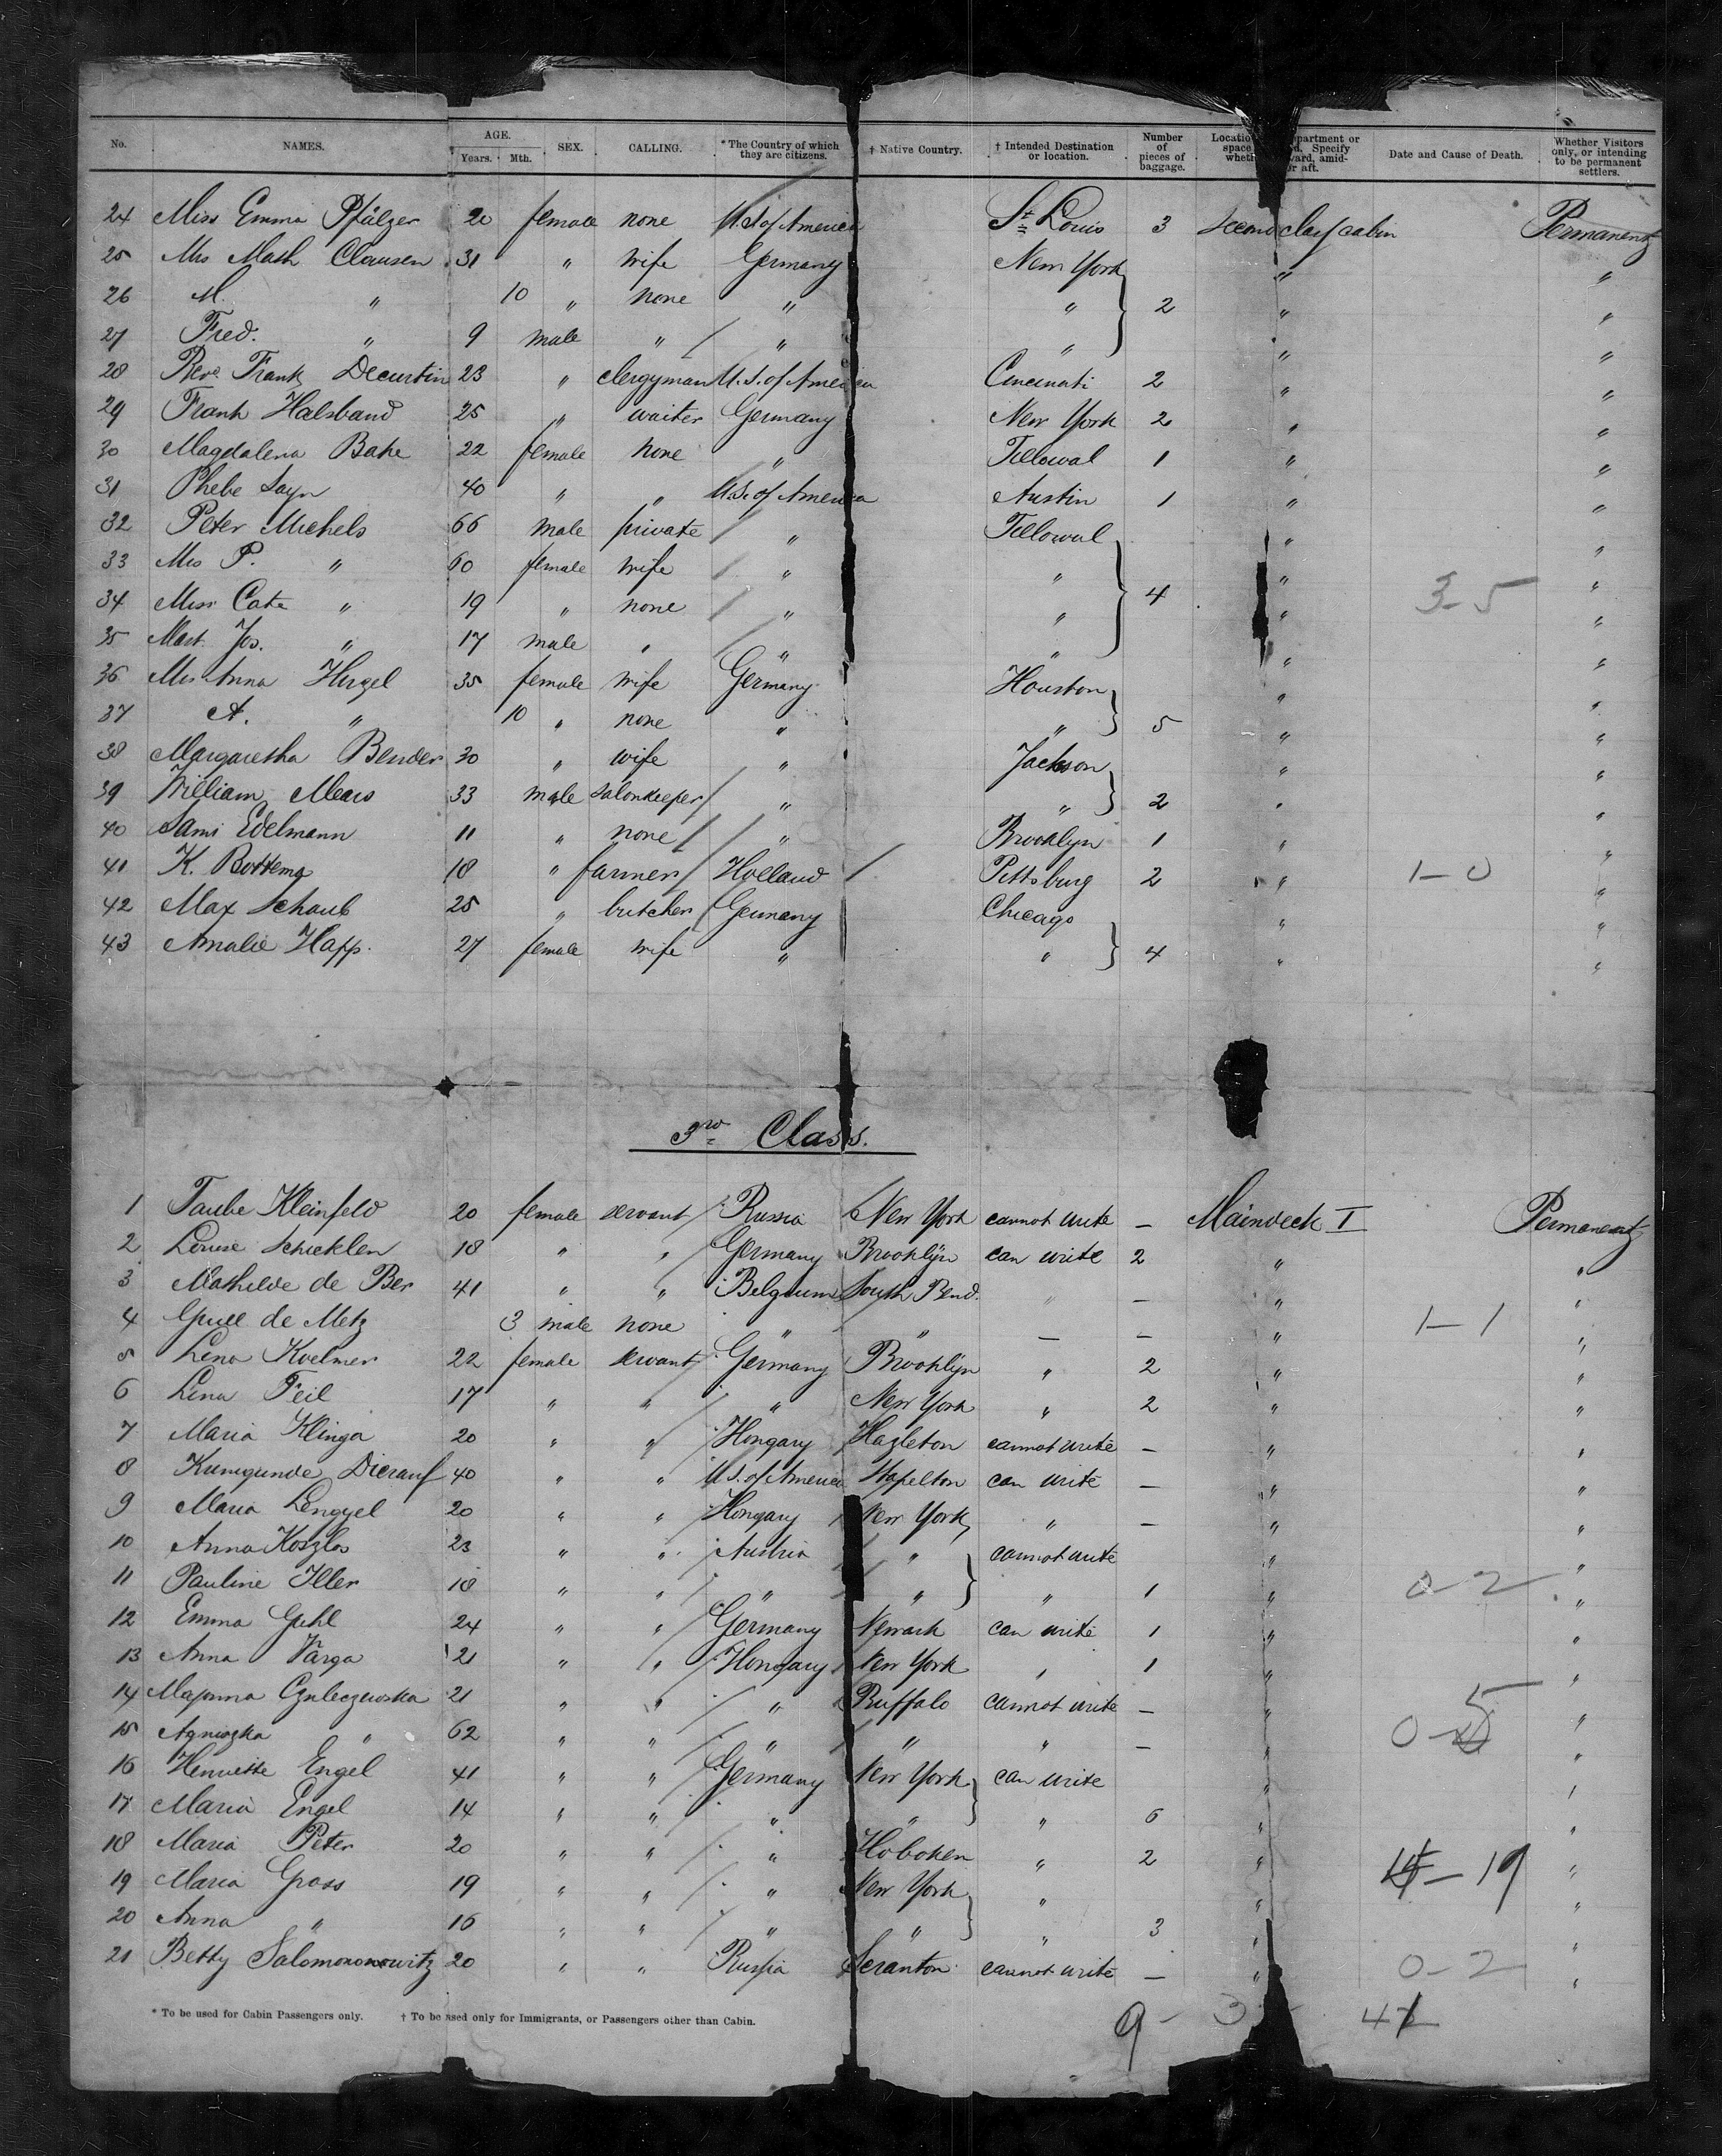 No. NAMES. AGE. Years. Mth. SEX. CALLING. *The Country of which they are citizens. † Native Country. † Intended Destination or location. Number of pieces of baggage. Date and Cause of Death. Whether Visitors only, or intending to be permanent settlers.
24 Miss Emma Pfälzer 20 female none U.S. of America St Louis 3 Second class cabin Permanent
25 Mrs Math Clausen 31 " wife Germany New York " "
26 M. " 10 " none " " 2 " "
27 Fred. " 9 male " " " " "
28 Revd Frank Decurtin 23 " clergyman U.S. of America Cincinati 2 " "
29 Frank Halsband 25 " waiter Germany New York 2 " "
30 Magdalena Bake 22 female none " 1 " "
31 Phebe Sayn 40 " " U.S. of America Austin 1 " "
32 Peter Michels 66 male private " " "
33 Mrs P. " 60 female wife " " " "
34 Miss Cate " 19 " none " " 4 " 3-5 "
35 Mast. Jos. " 17 male " " " " "
36 Mrs Anna Hirgel 35 female wife Germany Houston " "
37 A. " 10 " none " " 5 " "
38 Margaretha Bender 30 " wife " Jackson " "
39 William Mears 33 male salonkeeper " " 2 " "
40 Sami Edelmann 11 " none " Brooklyn 1 " "
41 K. Bottema 18 " farmer Holland Pittsburg 2 " 1-0 "
42 Max Schaub 25 " butcher Germany Chicago " "
43 Amalie Happ. 27 female wife " " 4 " "
3rd Class.
1 Taube Kleinfeld 20 female servant Russia New York cannot write - Maindeck I Permanent
2 Louise Schicklen 18 " " Germany Brooklyn can write 2 " "
3 Mathilde de Ber 41 " " Belgium South Bend. " - " "
4 de Metz 3 male none " " - - " 1-1 "
5 Lena Koelmer 22 female servant Germany Brooklyn " 2 " "
6 Lina Feil 17 " " " New York " 2 " "
7 Maria Klinga 20 " " Hongary Hazleton cannot write - " "
8 Kunigunde Dierauf 40 " " U.S. of America Stapelton can write - " "
9 Maria Lengyel 20 " " Hongary New York " - " "
10 Anna Koszlos 23 " " Austria " cannot write " "
11 Pauline Iller 18 " " " " " 1 " 0-2 "
12 Emma Guhl 24 " " Germany Newark can write 1 " "
13 Anna Varga 21 " " Hongary New York " 1 " "
14 Majanna Czuleczewska 21 " " " Buffalo cannot write - " "
15 Agniszka " 62 " " " " " - " 0-5 "
16 Henriette Engel 41 " " Germany New York can write " "
17 Maria Engel 14 " " " " " 6 " "
18 Maria Peter 20 " " " Hoboken " 2 " "
19 Maria Gross 19 " " " New York " " -19 "
20 Anna " 16 " " " " " 3 " "
21 Betty Salomononowitz 20 " " Russia Scranton cannot write - " 0-2 "
* To be used for Cabin Passengers only. † To be used only for Immigrants, or Passengers other than Cabin.
9 - 3